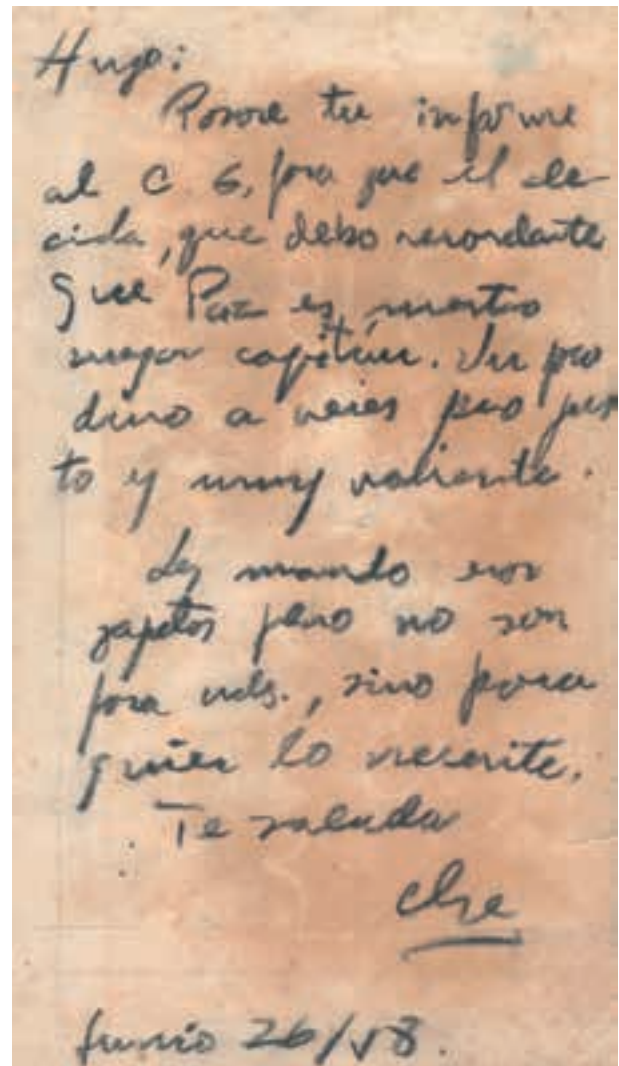 Hugo:
Pasaré tu informe
al C. G, para que él de
cida, que debo recordarte
que Paz es nuestro
mejor capitán. Un po
dino a veces pero jus
to y muy valiente.
Les mando esos
zapatos pero no son
para uds., sino para
quien lo necesite.
Te saluda
Che
Junio 26/58.